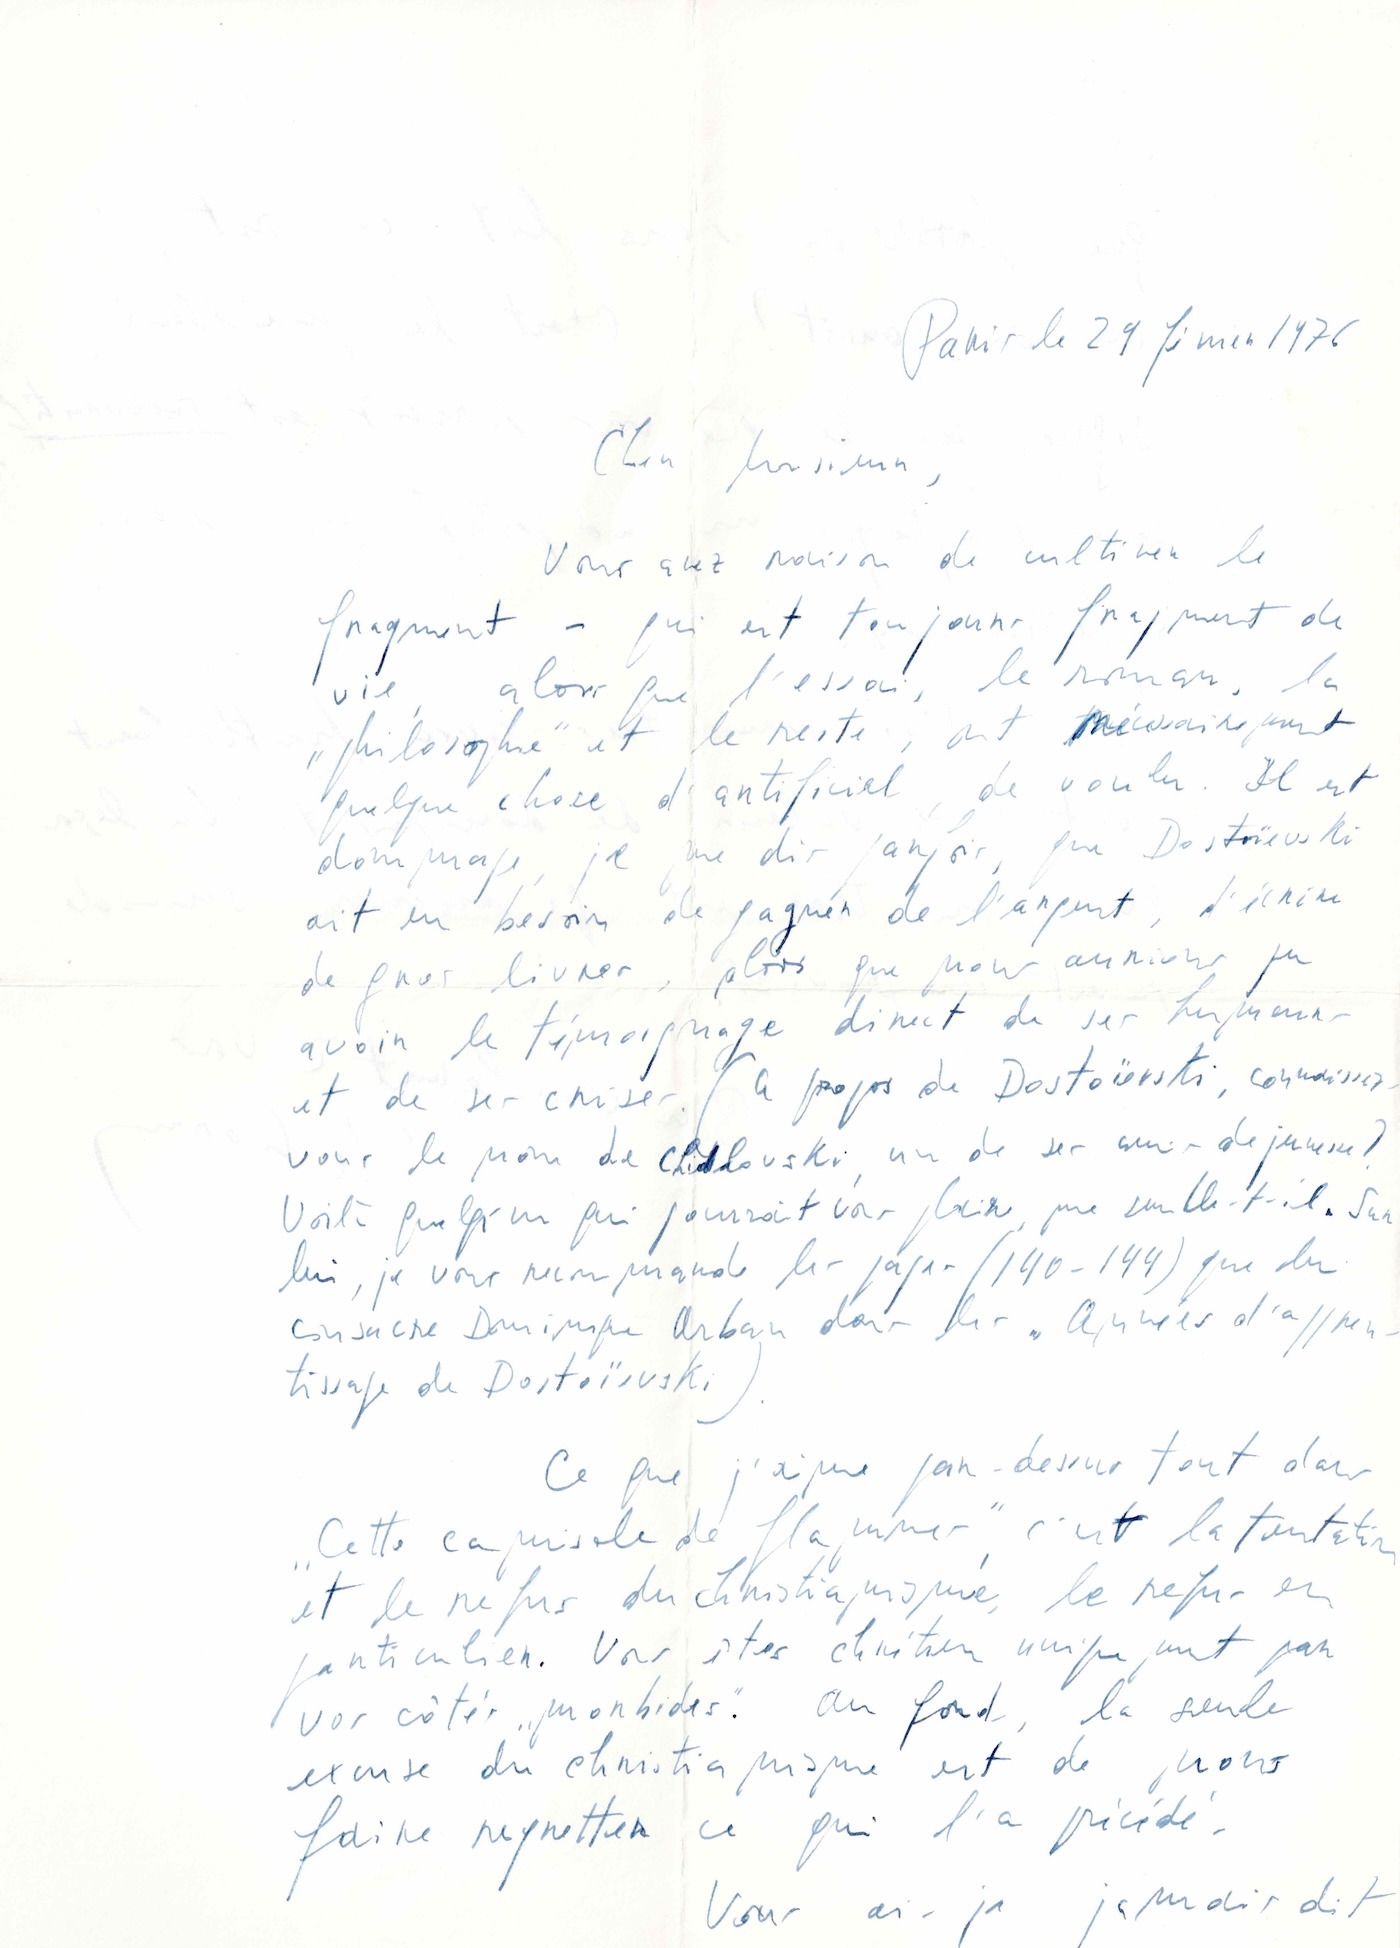 Paris le 29 février 1976
Cher Monsieur,
Vous avez raison de cultiver le
fragment – qui est toujours fragment de
vie, alors que l'essai, le roman, la
„philosophie" et le reste, ont nécessairement
quelque chose d'artificiel, de voulu. Il est
dommage, je me dis parfois, que Dostoïevski
ait eu besoin de gagner de l'argent, d'écrire
de gros livres, alors que nous aurions pu
avoir le témoignage direct de ses humeurs
et de ses crises. (A propos de Dostoïevski, connaissez-
vous le nom de Chidlovski, un de ses amis de jeunesse?
Voilà quelqu'un qui pourrait vous plaire, me semble-t-il. Sur
lui, je vous recommande les pages (140-144) que lui
consacre Dominique Arban dans les „Années d'appren-
tissage de Dostoïevski).
Ce que j'aime par-dessus tout dans
„Cette camisole de flammes", c'est la tentation
et le refus du christianisme, le refus en
particulier. Vous êtes chrétien uniquement par
vos côtés „morbides". Au fond, la seule
excuse du christianisme est de nous
faire regretter ce qui l'a précédé.
Vous ai-je jamais dit